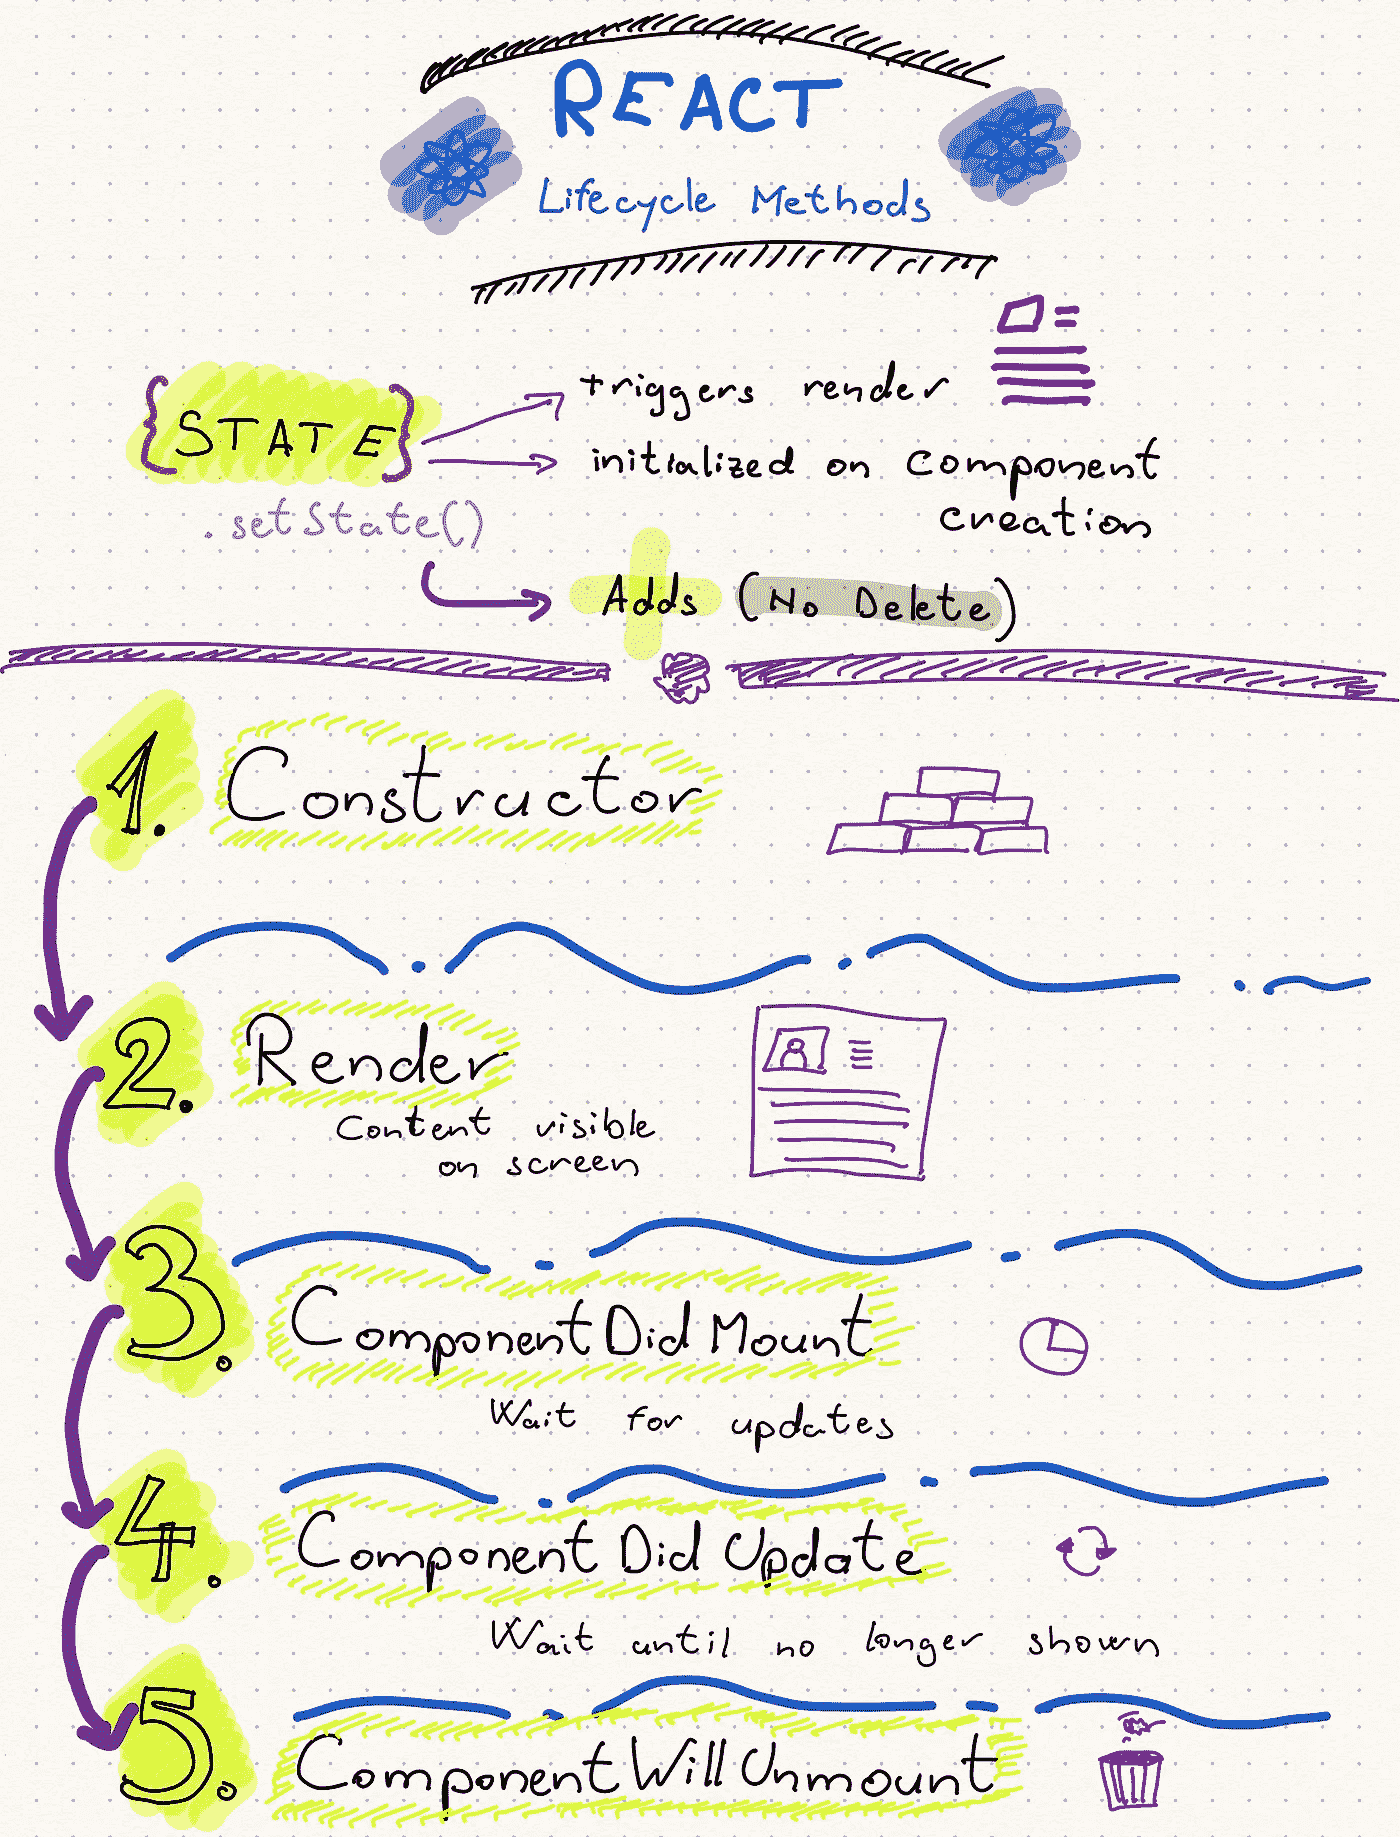 REACT
Lifecycle Methods
{STATE}
triggers render
initialized on component
creation
.setState()
Adds (No Delete)
1. Constructor
2. Render
Content visible
on screen
3. Component Did Mount
Wait for updates
4. Component Did Update
Wait until no longer shown
5. Component Will Unmount